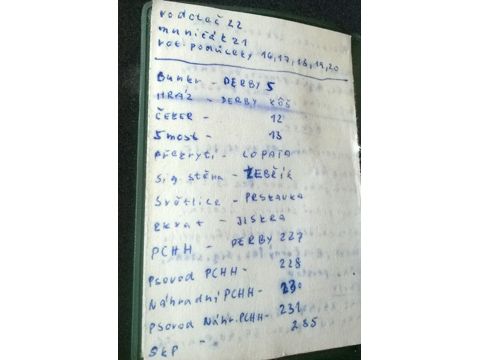 vodolač 22
muničák 21
rot. podúčetý 16, 17, 18, 19, 20
Bunkr - DERBY 5
HRÁZ - DERBY KŮŠ
ČEKER - 12
5 most - 13
překrytí - LOPATA
Sig stěna - ŽEBŘÍK
Světlice - PRSKAVKA
ekrat - JISKRA
PCHH - DERBY 227
psovod PCHH - 228
Náhradní PCHH - 230
psovod Náhr. PCHH - 231
SKP - 285